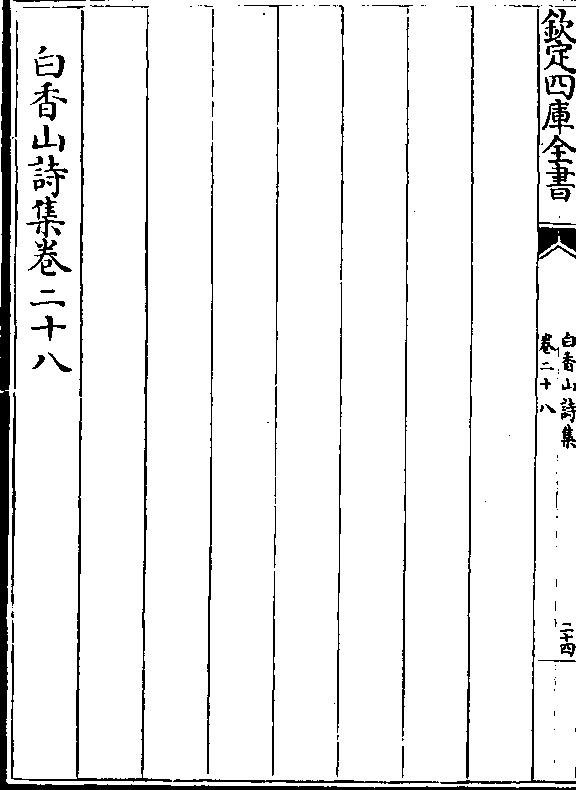 欽定四庫全書
白香山詩集
卷二十八
二十四
白香山詩集卷二十八